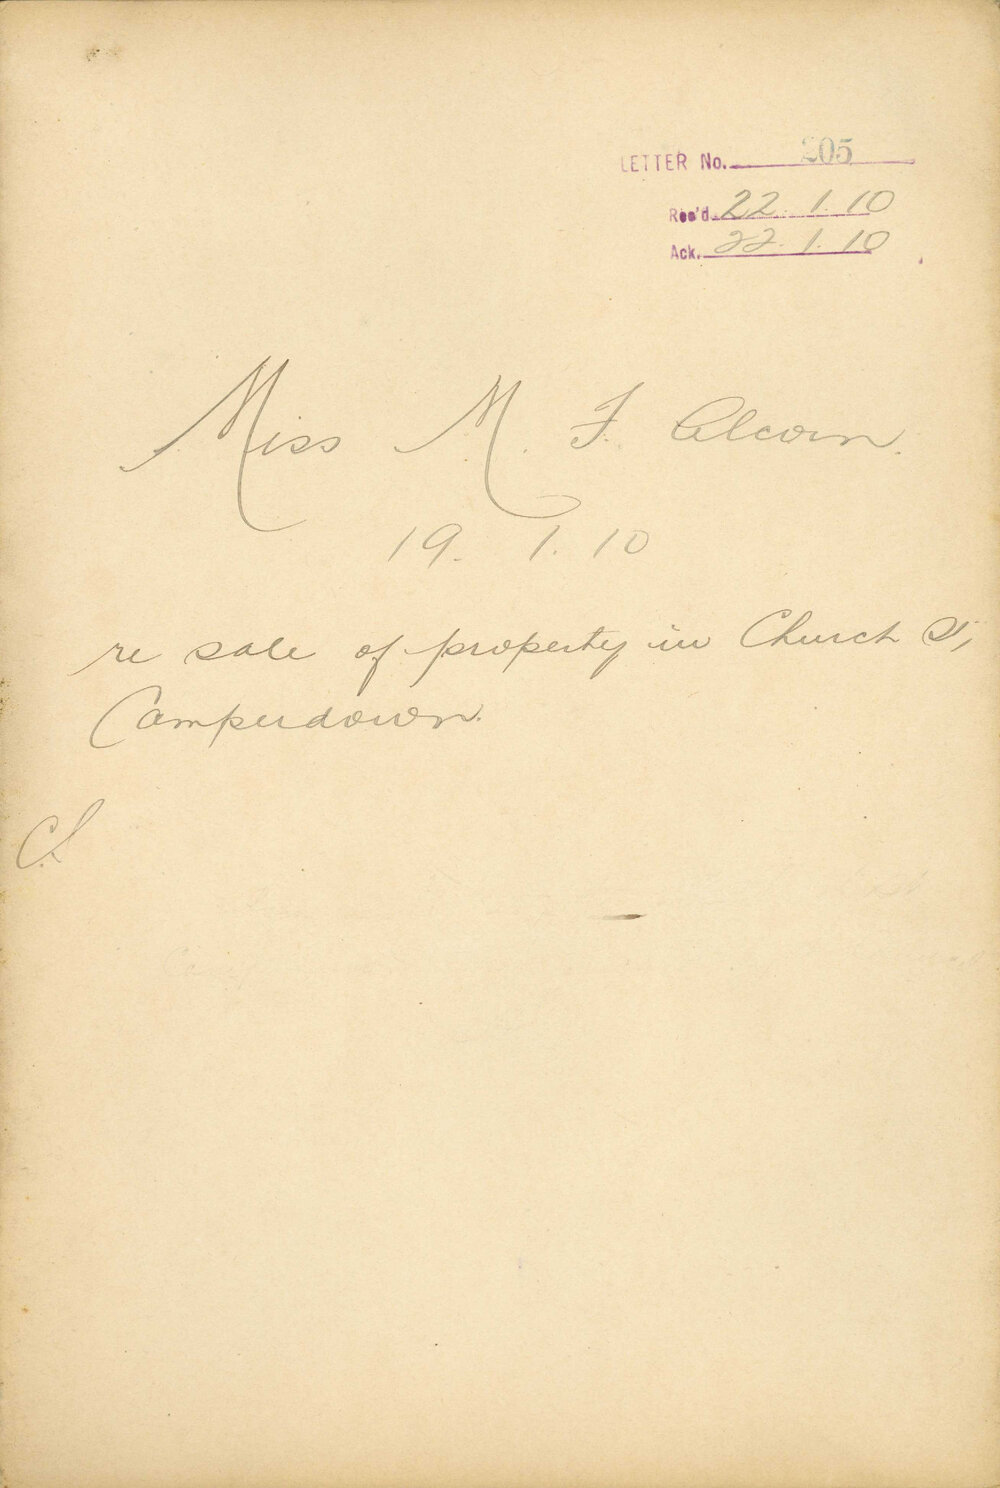 LETTER No. 205
Rec'd. 22. 1. 10
Ack. 22. 1. 10
Miss M. F. Alcorn.
19. 1. 10
re sale of property in Church St,
Camperdown.